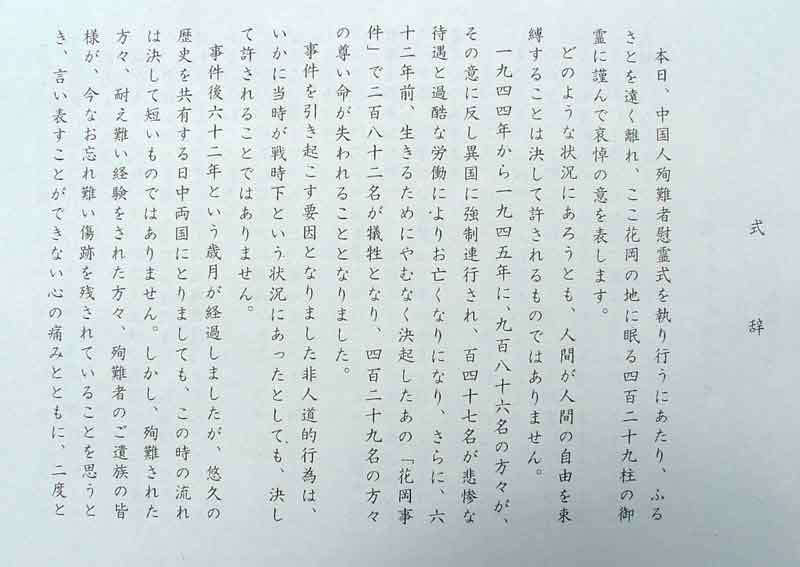 式辞
本日、中国人殉難者慰霊式を執り行うにあたり、ふる
さとを遠く離れ、ここ花岡の地に眠る四百二十九柱の御
霊に謹んで哀悼の意を表します。
どのような状況にあろうとも、人間が人間の自由を束
縛することは決して許されるものではありません。
一九四四年から一九四五年に、九百八十六名の方々が、
その意に反し異国に強制連行され、百四十七名が悲惨な
待遇と過酷な労働によりお亡くなりになり、さらに、六
十二年前、生きるためにやむなく決起したあの「花岡事
件」で二百八十二名が犠牲となり、四百二十九名の方々
の尊い命が失われることとなりました。
事件を引き起こす要因となりました非人道的行為は、
いかに当時が戦時下という状況にあったとしても、決し
て許されることではありません。
事件後六十二年という歳月が経過しましたが、悠久の
歴史を共有する日中両国にとりましても、この時の流れ
は決して短いものではありません。しかし、殉難された
方々、耐え難い経験をされた方々、殉難者のご遺族の皆
様が、今なお忘れ難い傷跡を残されていることを思うと
き、言い表すことができない心の痛みとともに、二度と